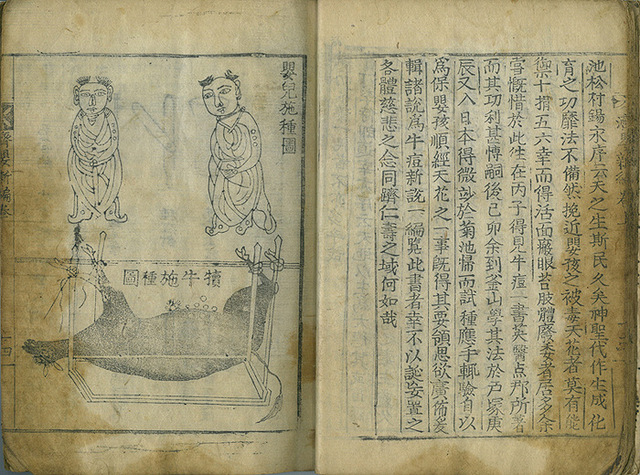 池松村錫永序云天之生斯民久矣神聖代作生成化
育之功靡法不備然挽近嬰孩之被毒天花者莫有能
禦十損五六幸而得活面癜眼苔肢體廢委者居多余
嘗慨惜於此在丙子得見牛痘一書英醫点那所著
而其功利甚博嗣後己卯余到釜山學其法於戶塚庚
辰又入日本得微竗於菊池歸而試種應手輒驗自以
爲保嬰孩順經天花之一事旣得其要領思欲廣佈爰
輯諸說爲牛痘新說一編覽此書者幸不以誕妄置之
各體慈悲之念同躋仁壽之域何如哉
嬰兒施種圖
犢牛施種圖